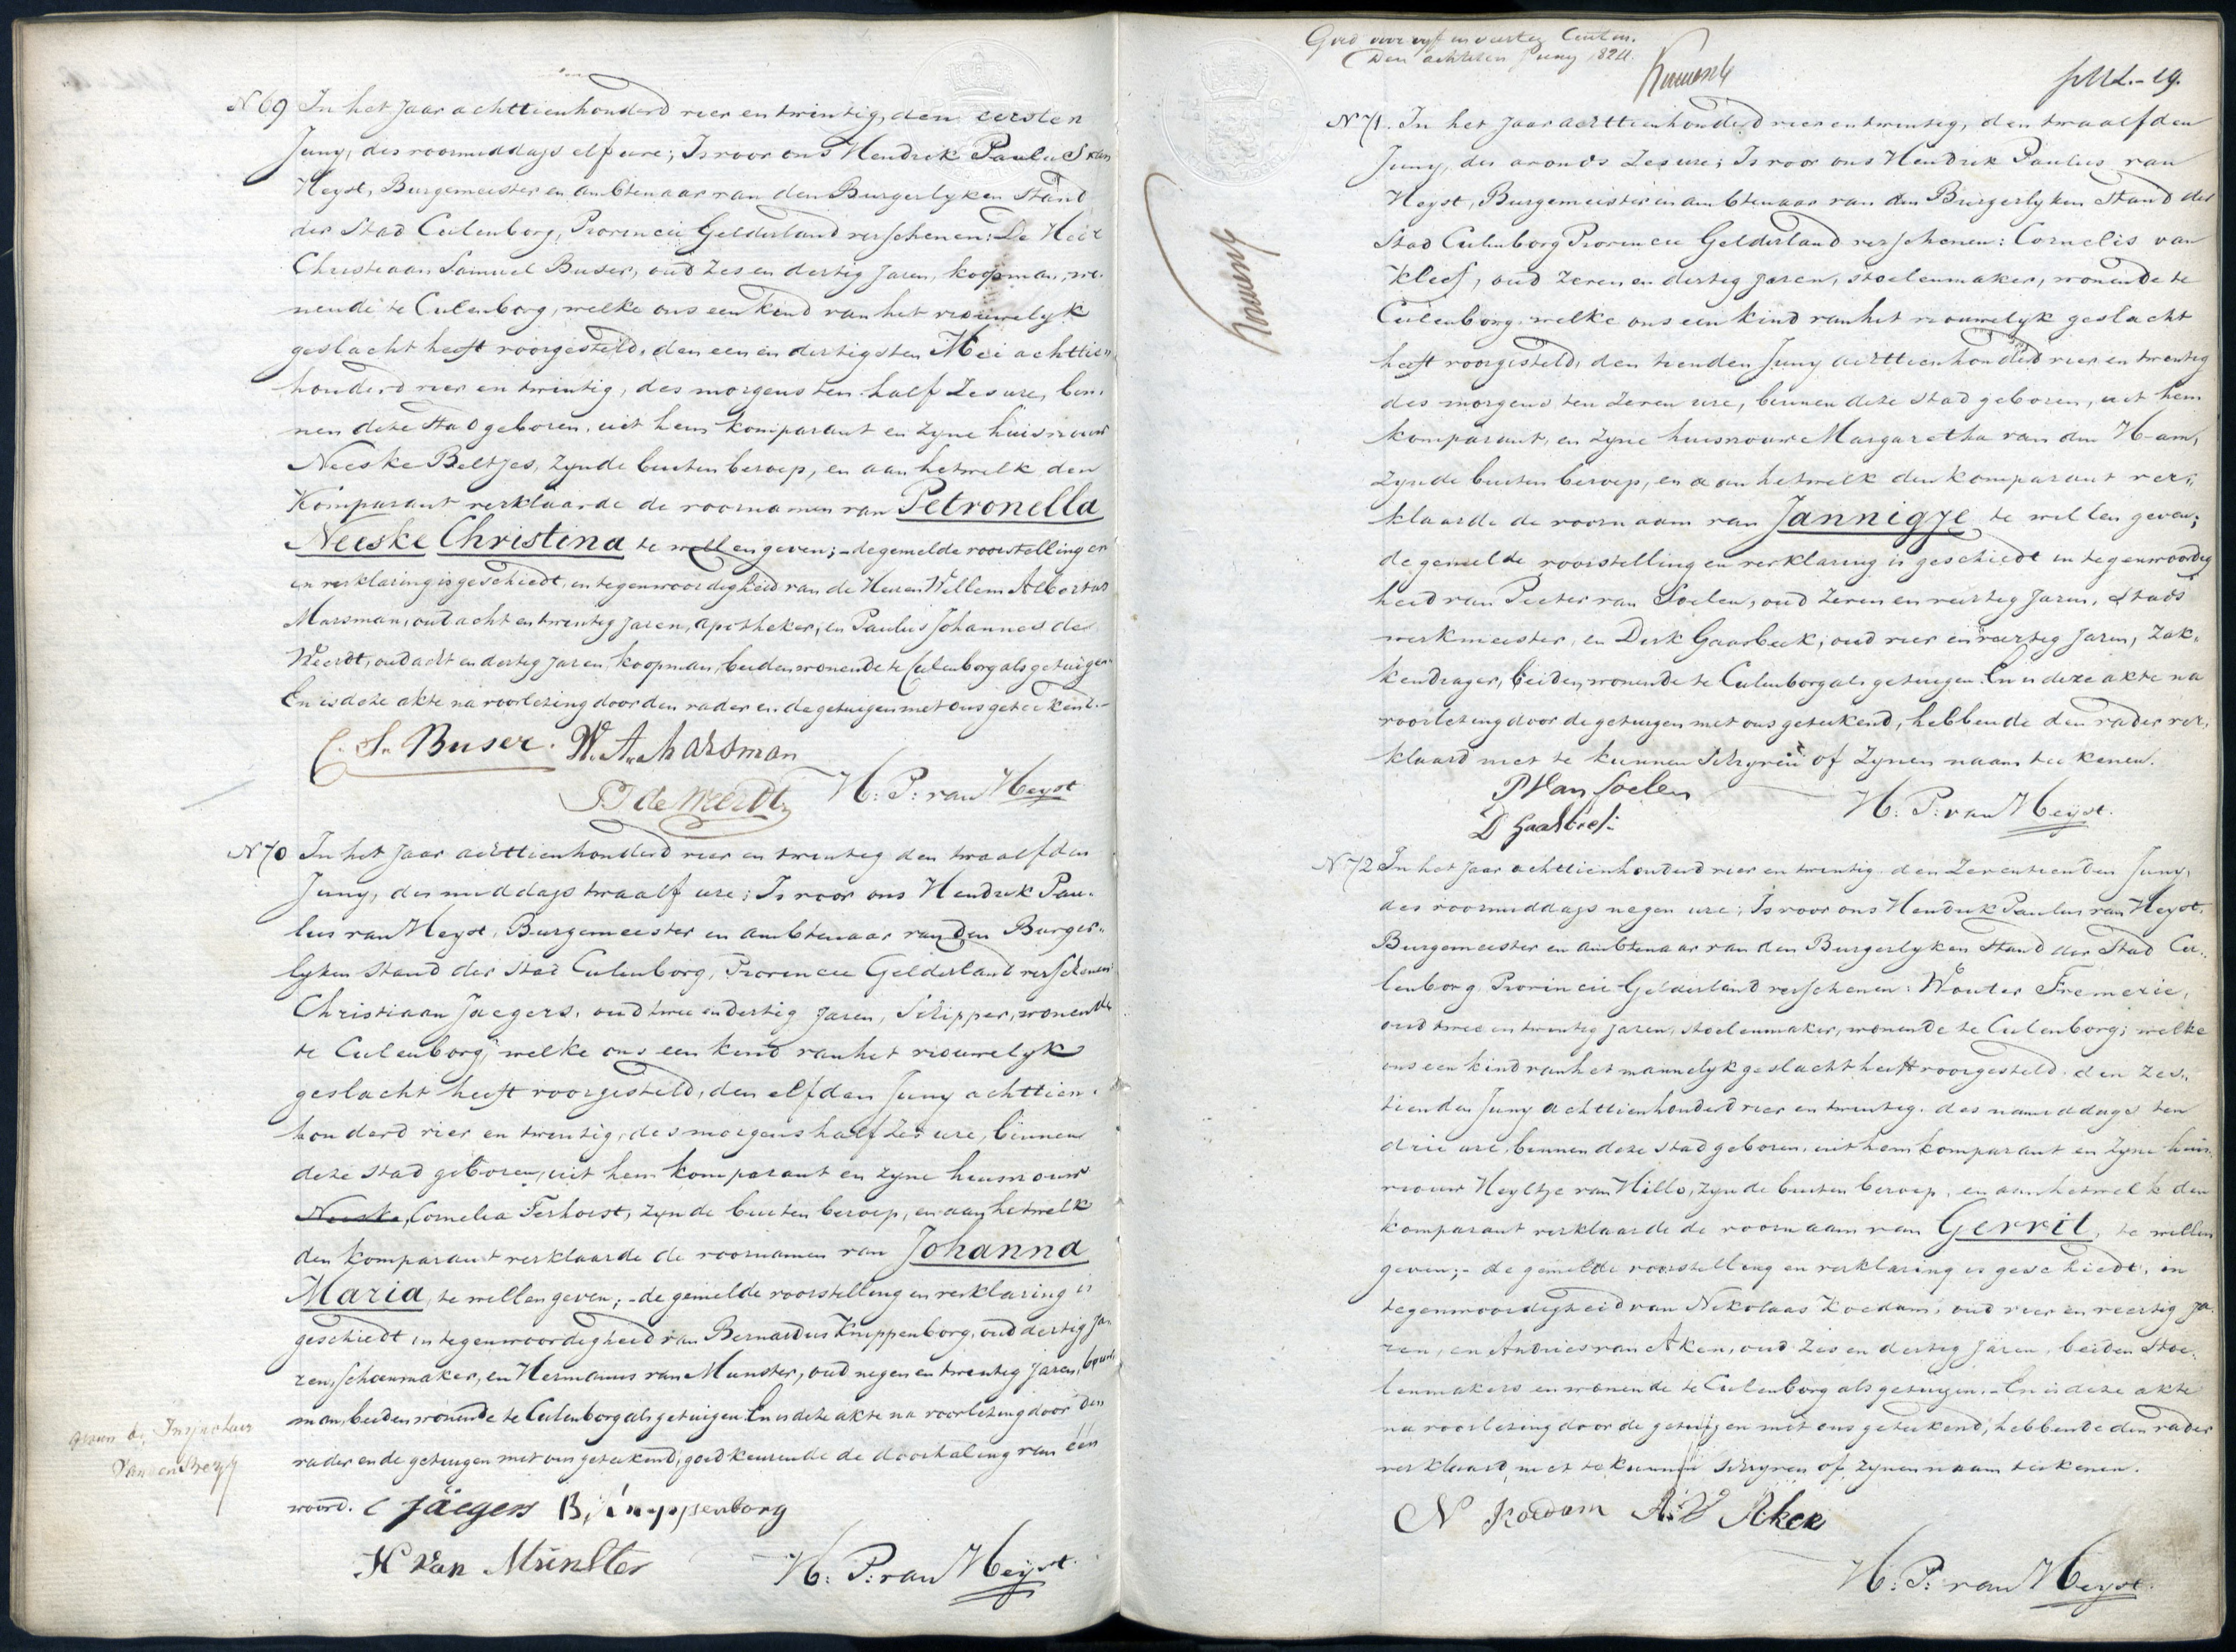 N 69 In het Jaar achttienhonderd vier en twintig, den eersten
Juny, des voormiddags elf ure; Is voor ons Hendrik Paulus van
Heyst, Burgemeester en ambtenaar van den Burgerlyken Stand
der Stad Culenborg, Provincie Gelderland verschenen: De Heer
Christiaan Samuel Buser, oud zes en dertig Jaren, koopman, wo-
nende te Culenborg, welke ons een kind van het vrouwelyk
geslacht heeft voorgesteld, den een en dertigsten Mei achttien
honderd vier en twintig, des morgens ten half zes ure, bin-
nen deze Stad geboren, uit hem komparant en zyne huisvrouw
Neeske Beltjes, zynde buiten beroep, en aan hetwelk den
Komparant verklaarde de voornamen van Petronella
Neeske Christina te willen geven; - de gemelde voorstelling en
en verklaring is geschiedt, in tegenwoordigheid van de Heeren Willem Albertus
Marsman, oud acht en twintig jaren, apotheker, en Paulus Johannes de
Weerdt, oud acht en dertig jaren, koopman, beiden wonende te Culenborg als getuigen.
En is deze akte na voorlezing door den vader en de getuigen met ons geteekend.-
C. S. Buser. W. A. Marsman
P J de Weerdt H: P: van Heyst
N 70 In het Jaar achttienhonderd vier en twintig den twaalfden
Juny, des middags twaalf ure; Is voor ons Hendrik Pau-
lus van Heyst, Burgemeester en ambtenaar van den Burger-
lyken Stand der Stad Culenborg, Provincie Gelderland verschenen:
Christiaan Jaegers, oud twee en dertig Jaren, Schipper, wonende
te Culenborg, welke ons een kind van het vrouwelyk
geslacht heeft voorgesteld, den elfden Juny achttien-
honderd vier en twintig, des morgens half zes ure, binnen
deze Stad geboren, uit hem komparant en zyne huisvrouw
Neeske, Cornelia Terhorst, zynde buiten beroep, en aan hetwelk
den komparant verklaarde de voornamen van Johanna
Maria, te willen geven; - de gemelde voorstelling en verklaring is
geschiedt in tegenwoordigheid van Bernardus Knippenborg, oud dertig Ja-
ren, schoenmaker, en Hermanus van Munster, oud negen en twintig jaren, bouw
man, beiden wonende te Culenborg als getuigen. En is deze akte na voorlezing door den
vader en de getuigen met ons geteekend, goedkeurende de doorhaling van een
woord. C Jäegers B, Knippenborg
H van Münster H: P: van Heyst.
Inspecteur
Goed voor vyf en veertig Centen.
Den achtsten Juny 1824.
N 71. In het Jaar achttienhonderd vier en twintig, den twaalfden
Juny, des avonds zes ure; Is voor ons Hendrik Paulus van
Heyst, Burgemeester en ambtenaar van den Burgerlyken Stand der
Stad Culenborg Provincie Gelderland verschenen: Cornelis van
Kleef, oud zeven en dertig jaren, stoelenmaker, wonende te
Culenborg, welke ons een kind van het vrouwelyk geslacht
heeft voorgesteld, den tienden Juny achttienhonderd vier en twintig
des morgens ten zeven ure, binnen deze Stad geboren, uit hem
komparant, en zyne huisvrouw Margaretha van den Ham,
zynde buiten beroep, en aan hetwelk den komparant ver-
klaarde de voornaam van Jannigje te willen geven;
de gemelde voorstelling en verklaring is geschiedt in tegenwoordig
heid van Pieter van Soelen, oud zeven en veertig Jaren, Stads
werkmeester, en Dirk Gaasbeek, oud vier en veertig Jaren, Zak-
kendrager, beiden wonende te Culenborg als getuigen. En is deze akte na
voorlezing door de getuigen met ons geteekend, hebbende den vader ver-
klaard niet te kunnen schryven of zynen naam teekenen.
P Van Soelen
H: P: van Heyst.
D Gaasbeek
N 72 In het Jaar achttienhonderd vier en twintig den Zeventienden Juny,
des voormiddags negen ure; Is voor ons Hendrik Paulus van Heyst,
Burgemeester en ambtenaar van den Burgerlyken Stand der Stad Cu-
lenborg Provincie Gelderland verschenen: Wouter Fremerie,
oud twee en twintig jaren, stoelenmaker, wonende te Culenborg; welke
ons een kind van het mannelyk geslacht heeft voorgesteld, den Zes-
tienden Juny achttienhonderd vier en twintig, des namiddags ten
drie ure, binnen deze Stad geboren, uit hem komparant en zyne huis-
vrouw Heyltje van Hillo, zynde buiten beroep, en aan hetwelk den
komparant verklaarde de voornaam van Gerrit, te willen
geven; - de gemelde voorstelling en verklaring is geschiedt, in
tegenwoordigheid van Nikolaas Koedam, oud vier en veertig Ja-
ren, en Andries van Aken, oud zes en dertig Jaren, beiden Stoe-
lenmakers en wonende te Culenborg als getuigen. - En is deze akte
na voorlezing door de getuigen met ons geteekend, hebbende den vader
verklaard, niet te kunnen schryven of zynen naam teekenen.
N Koedam A. V Aken
H: P: van Heyst.